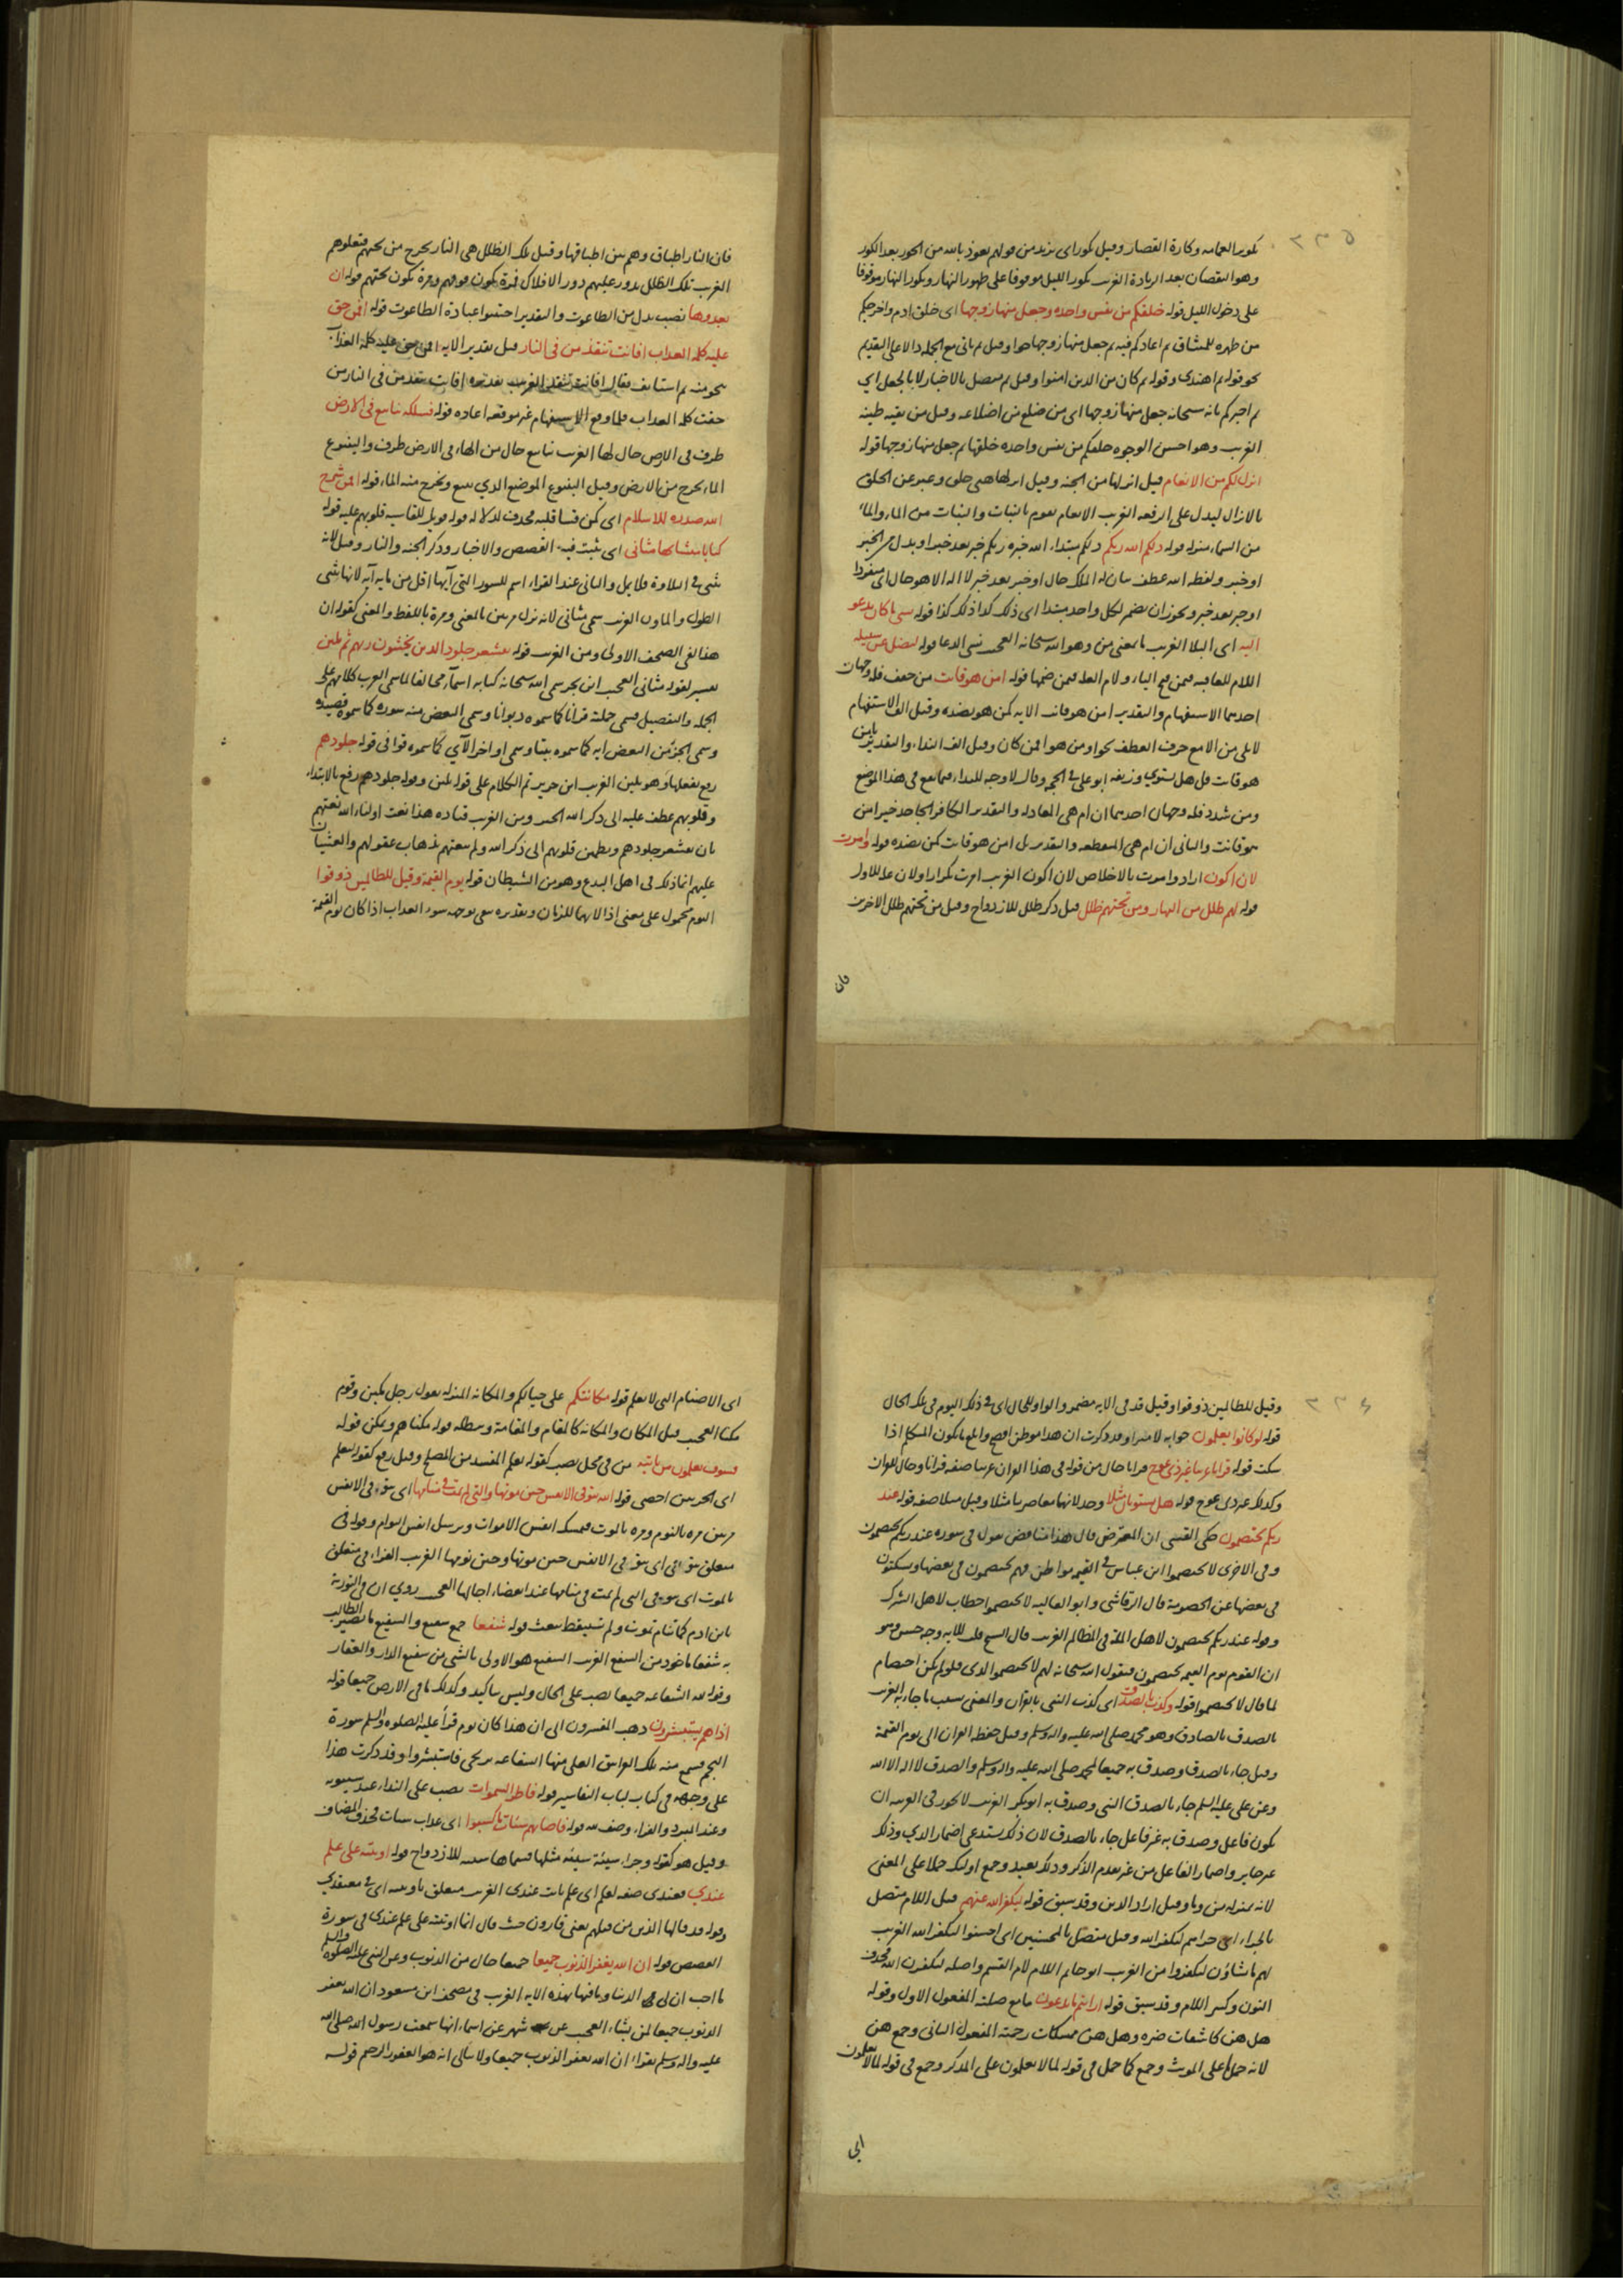 ٢٣٥
كور العمامه وكارة القصار وقيل كور اى يزيد من قولهم نعوذ بالله من الحور بعد الكور
وهو النقصان بعد الزيادة الغريب يكور الليل موقوفا على ظهور النهار ويكور النهار موقوفا
على دخول الليل قوله خلقكم من نفس واحده وجعل منها زوجها اى خلق ادم واخرجكم
من ظهره للمشاق ثم اعادكم فيه ثم جعل منها زوجها حوا وقيل ثم ياتى مع الجمله دالا على التقديم
نحو قوله ثم اهتدى وقوله ثم كان من الذين امنوا وقيل ثم متصل بالاخبار لا بالجعل اى
ثم اخبركم بانه سبحانه جعل منها زوجها اى من ضلع من اضلاعه وقيل من بقيه طينه
الغريب وهو احسن الوجوه خلقكم من نفس واحده خلقها ثم جعل منها زوجها قوله
انزل لكم من الانعام قيل انزلها من الجنه وقيل انزلها هى خلق وعبر عن الخلق
بالانزال ليدل على الرفعه الغريب الانعام تقوم بالنبات والنبات من الماء والماء
من السماء منزله قوله ذلكم الله ربكم ذلكم مبتداء الله خبره ربكم خبر بعد خبر او بدل من الخبر
او خبر ولفظه الله عطف بيان له الملك حال او خبر بعد خبر لا اله الا هو حال اى منفردا
او خبر بعد خبر ويجوز ان يضمر لكل واحد مبتدا اى ذلك كذا ذلك كذا قوله نسى ما كان يدعو
اليه اى البلا الغريب ما بمعنى من وهو الله سبحانه العجيب نسى الدعا قوله ليضل عن سبيله
اللام للعاقبه فيمن فتح الياء ولام العله فيمن ضمها قوله امن هو قانت من خفف فله وجهان
احدهما الاستفهام والتقدير امن هو قانت الايه كمن هو بضده وقيل الف الاستفهام
لا يلى من الا مع حرف العطف نحو او من هو افمن كان وقيل الف النداء والتقدير يا من
هو قانت قل هل يستوي وزيفه ابو على فى الحجه وقال لا وجه للنداء فيما يقع فى هذا الموضع
ومن شدد فله وجهان احدهما ان ام هى المعادله والتقدير الكافر الجاحد خير امن
هو قانت والثانى ان ام هى المنقطعه والتقدير بل امن هو قانت كمن بضده قوله وامرت
لان اكون اراد وامرت بالاخلاص لان اكون الغريب امرت تكرارا ولان عله للاول
قوله لهم ظلل من النهار ومن تحتهم ظلل قيل ذكر ظلل للازدواج وقيل من تحتهم ظلل الاخرين
فان
فان النار اطباق وهم بين اطباقها وقيل تلك الظلل هى النار يخرج من تحتهم فتعلوهم
الغريب تلك الظلل يدور عليهم دور الافلاك فمرة يكون فوقهم ومرة تكون تحتهم قوله ان
يعبدوها نصب بدل من الطاغوت والتقدير اجتنبوا عبادة الطاغوت قوله افمن حق
عليه كلمه العذاب افانت تنقذ من فى النار قيل تقدير الايه افمن حق عليه كلمه العذاب
ينجو منه ثم استانف فقال افانت تنقذ الغريب تقديره افانت تنقذ من فى النار من
حقت كلمه العذاب فلما وقع الاستفهام غير موقعه اعاده قوله فسلكه ينابيع فى الارض
ظرف فى الارض حال لها الغريب ينابيع حال من الهاء فى الارض ظرف والينبوع
الماء يخرج من الارض وقيل الينبوع الموضع الذي ينبع ويخرج منه الماء قوله افمن شرح
الله صدره للاسلام اى كمن قسا قلبه فحذف لدلاله قوله فويل للقاسيه قلوبهم عليه قوله
كتابا متشابها مثانى اى يثبت فيه القصص والاخبار وذكر الجنه والنار وقيل لانه
يثنى فى التلاوة فلا يمل والمثانى عند القراء اسم للسور التى آيها اقل من مايه آيه لانها يثنى
الطول والمئون الغريب سمى مثانى لانه نزل مرتين بالمعنى ومرة باللفظ والمعنى كقوله ان
هذا لفى الصحف الاولى ومن الغريب قوله تقشعر جلود الذين يخشون ربهم ثم تلين
تفسير لقوله مثانى العجيب ابن بحر سمى الله سبحانه كتابه اسمآء مخالفا لما سمى العرب كلامهم على
الجمله والتفصيل فسمى جملته قرانا كما سموه ديوانا وسمى البعض منه سوره كما سموه قصيده
وسمى الجزء من البعض ايه كما سموه بيتا وسمى اواخر الآي كما سموه قوافى قوله جلودهم
رفع بفعلها وهو تلين الغريب ابن جرير تم الكلام على قوله تلين وقوله جلودهم رفع بالابتداء
وقلوبهم عطف عليه الى ذكر الله الخبر ومن الغريب قتاده هذا نعت اولياء الله نعتهم
بان تقشعر جلودهم وتطمئن قلوبهم الى ذكر الله ولم ينعتهم بذهاب عقولهم والغشيان
عليهم انما ذلك فى اهل البدع وهو من الشيطان قوله يوم القيمة وقيل للظالمين ذوقوا
اليوم محمول على معنى اذا لانهما للزمان وتقديره يتقى بوجهه سوء العذاب اذا كان يوم القيمة
٢٣٦
وقيل للظالمين ذوقوا وقيل قد فى الايه مضمر والواو للحال اى فى ذلك اليوم فى تلك الحال
قوله لو كانوا يعلمون جوابه لامنوا وقد ذكرت ان هذا موطن افصح وابلغ ما يكون المتكلم اذا
سكت قوله قرانا عربيا غير ذى عوج قرانا حال من قوله فى هذا القران عربيا صفه قرانا وحال للقران
وكذلك غير ذى عوج قوله هل يستويان مثلا وحد لانهما معا ضربا مثلا وقيل مثلا صفه قوله عند
ربكم تختصمون حكى القتبى ان المعترض قال هذا متناقض يقول فى سوره عند ربكم تختصمون
وفى الاخرى لا تختصموا ابن عباس فى القيمه مواطن فهم يختصمون فى بعضها ويسكتون
فى بعضها عن الخصومة قال الرقاشى وابو العاليه لا تختصموا خطاب لاهل الشرك
وقوله عند ربكم تختصمون لاهل المله فى المظالم الغريب قال الشيخ قلت للايه وجه حسن وهو
ان القوم يوم القيمه يختصمون فيقول الله سبحانه لهم لا تختصموا لدى فلو لم يكن اختصام
لما قال لا تختصموا قوله وكذب بالصدق اى كذب النبى بالقرآن والمعنى بسبب ما جاء به الغريب
بالصدق بالصادق وهو محمد صلى الله عليه واله وسلم وقيل حفظه القران الى يوم القيمة
وقيل جاء بالصدق وصدق به جميعا لمحمد صلى الله عليه واله وسلم والصدق لا اله الا الله
وعن على عليه السلم جاء بالصدق النبى وصدق به ابو بكر الغريب لا يجوز فى العربيه ان
يكون فاعل وصدق به غير فاعل جاء بالصدق لان ذلك يستدعى اضمار الذي وذلك
غير جايز واضمار الفاعل من غير تقدم الذكر وذلك بعيد وجمع اولئك حملا على المعنى
لانه بمنزله من وما وقيل اراد الذين وقد سبق قوله ليكفر الله عنهم قيل اللام متصل
بالجزاء اى جزاهم ليكفر الله وقيل متصل بالمحسنين اى احسنوا ليكفر الله الغريب
لهم ما يشاؤن ليكفروا من الغريب ابو حاتم اللام لام القسم واصله ليكفرن الله فحذف
النون وكسر اللام وقد سبق قوله ارايتم ما تدعون ما مع صلته المفعول الاول وقوله
هل هن كاشفات ضره وهل هن ممسكات رحمته المفعول الثانى وجمع هن
لانه حملها على المونث وجمع كما حمل فى قوله لما لا يعلمون على المذكر وجمع فى قوله لما لا يعلمون
اى
اى الاصنام التى لا تعلم قوله مكانتكم على حيالكم والمكانه المنزله يقول رجل مكين وقوم
مكنا العجيب قيل المكان والمكانه كالمقام والمقامة وسطله قوله مكناهم ويمكن قوله
فسوف تعلمون من ياتيه من فى محل نصب كقوله يعلم المفسد من المصلح وقيل رفع كقوله لنعلم
اى الحزبين احصى قوله الله يتوفى الانفس حين موتها والتى لم تمت فى منامها اى يتوفى الانفس
مرتين مره بالنوم ومره بالموت فيمسك انفس الاموات ويرسل انفس النوام وقوله فى
متعلق بيتوفى اى يتوفى الانفس حين موتها وحين نومها الغريب الفراء فى متعلق
بالموت اى يتوفى التى لم تمت فى منامها عند انقضاء اجالها العجيب روي ان فى التورية
يا بن ادم كما تنام تموت ولم تستيقظ تبعث قوله شفعا جمع شفيع والشفيع بالنصير الطالب
به شفعا ماخوذ من الشفع الغريب الشفيع هو الاولى بالشى من شفيع الدار والعقار
وقوله لله الشفاعه جميعا نصب على الحال وليس بتاكيد وكذلك ما فى الارض جميعا قوله
اذا هم يستبشرون ذهب المفسرون الى ان هذا كان يوم قرأ عليه الصلوه والسلم سورة
النجم فسمع منه تلك الغرانيق العلى منها الشفاعه ترتجى فاستبشروا وقد ذكرت هذا
على وجهه فى كتاب لباب التفاسير قوله فاطر السموات نصب على النداء عند سيبويه
وعند المبرد والفراء وصف لله قوله فاصابهم سيئات ما كسبوا اى عذاب سيئات فحذف المضاف
وقيل هو كقوله وجزاء سيئة سيئه مثلها فسماها سيئه للازدواج قوله اوتيته على علم
عندي فعندى صفه لعلم اى علم ثابت عندى الغريب متعلق باوتيته اى فى معتقدي
وقوله قد قالها الذين من قبلهم يعنى قارون حيث قال انما اوتيته على علم عندى فى سورة
القصص قوله ان الله يغفر الذنوب جميعا جميعا حال من الذنوب وعن النبى عليه الصلوة والسلم
ما احب ان لى الدنيا وما فيها بهذه الايه الغريب فى مصحف ابن مسعود ان الله يغفر
الذنوب جميعا لمن يشاء العجيب عن شهر عن اسماء انها سمعت رسول الله صلى الله
عليه واله وسلم يقراء ان الله يغفر الذنوب جميعا ولا يبالى انه هو الغفور الرحيم قوله